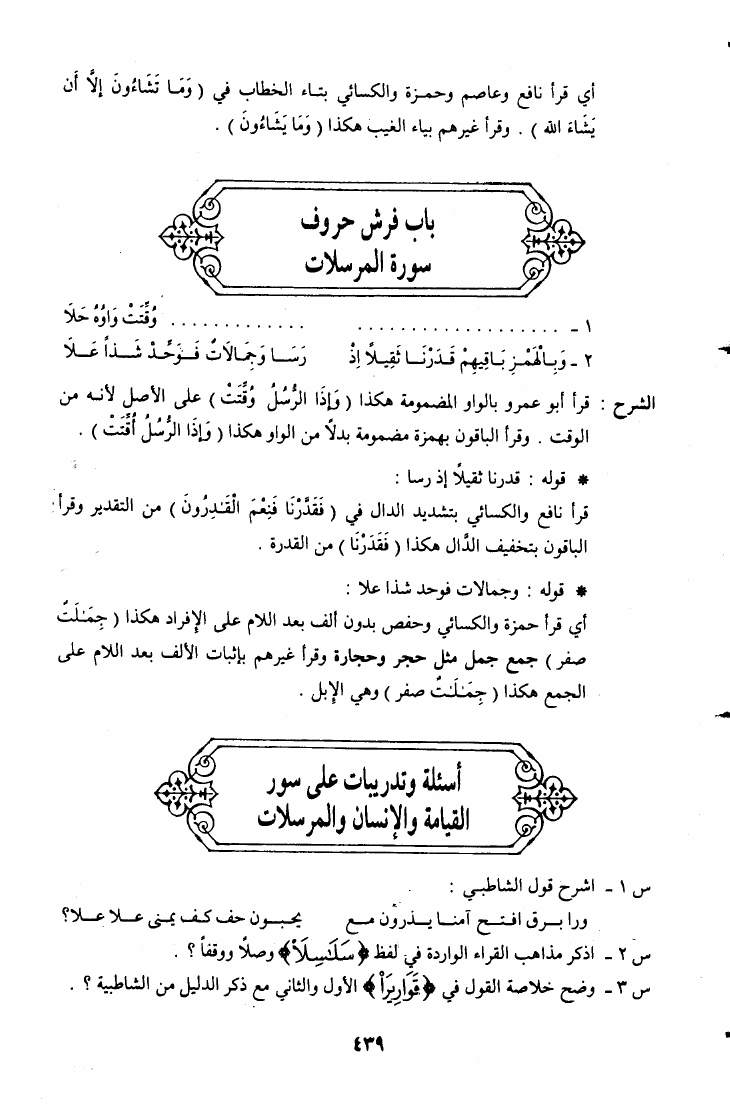 أي قرأ نافع وعاصم وحمزة والكسائي بتاء الخطاب في ( وَمَا تَشَاءُونَ إلَّا أن
يَشَاءَ الله ) . وقرأ غيرهم بياء الغيب هكذا ( وَمَا يَشَاءُونَ ) .
باب فرش حروف
سورة المرسلات
١ - . . . . . . . . . . . . . . . . . . . . . . . . . . . . . . وُقِّتَتْ وَاوُهُ حَلَا
٢ - وَبِالْهَمْزِ بَاقِيهِمْ قَدَرْنَا ثَقِيلًا إذْ رَسَا وَجِمَالَاتٌ فَوَحِّدْ شَذاً عَلَا
الشرح : قرأ أبو عمرو بالواو المضمومة هكذا ( وَإذَا الرُّسُلُ وُقِّتَتْ ) على الأصل لأنه من
الوقت . وقرأ الباقون بهمزة مضمومة بدلاً من الواو هكذا ( وَإذَا الرُّسُلُ أُقِّتَتْ ) .
* قوله : قدرنا ثقيلاً إذ رسا :
قرأ نافع والكسائي بتشديد الدال في ( فَقَدَّرْنَا فَنِعْمَ الْقَٰدِرُونَ ) من التقدير وقرأ
الباقون بتخفيف الدَّال هكذا ( فَقَدَرْنَا ) من القدرة .
* قوله : وجمالات فوحد شذا علا :
أي قرأ حمزة والكسائي وحفص بدون ألف بعد اللام على الإفراد هكذا ( جِمَٰلَتٌ
صفر ) جمع جمل مثل حجر وحجارة وقرأ غيرهم بإثبات الألف بعد اللام على
الجمع هكذا ( جِمَٰلَٰتٌ صفر ) وهي الإبل .
أسئلة وتدريبات على سور
القيامة والإنسان والمرسلات
س ١ - اشرح قول الشاطبي :
ورا برق افتح آمنا يذرون مع يحبون حف كف يمنى علا علا؟
س ٢ - اذكر مذاهب القراء الواردة في لفظ ﴿سَلَٰسِلَاْ﴾ وصلاً ووقفاً ؟ .
س ٣ - وضح خلاصة القول في ﴿قَوَارِيرَاْ﴾ الأول والثاني مع ذكر الدليل من الشاطبية ؟ .
٤٣٩